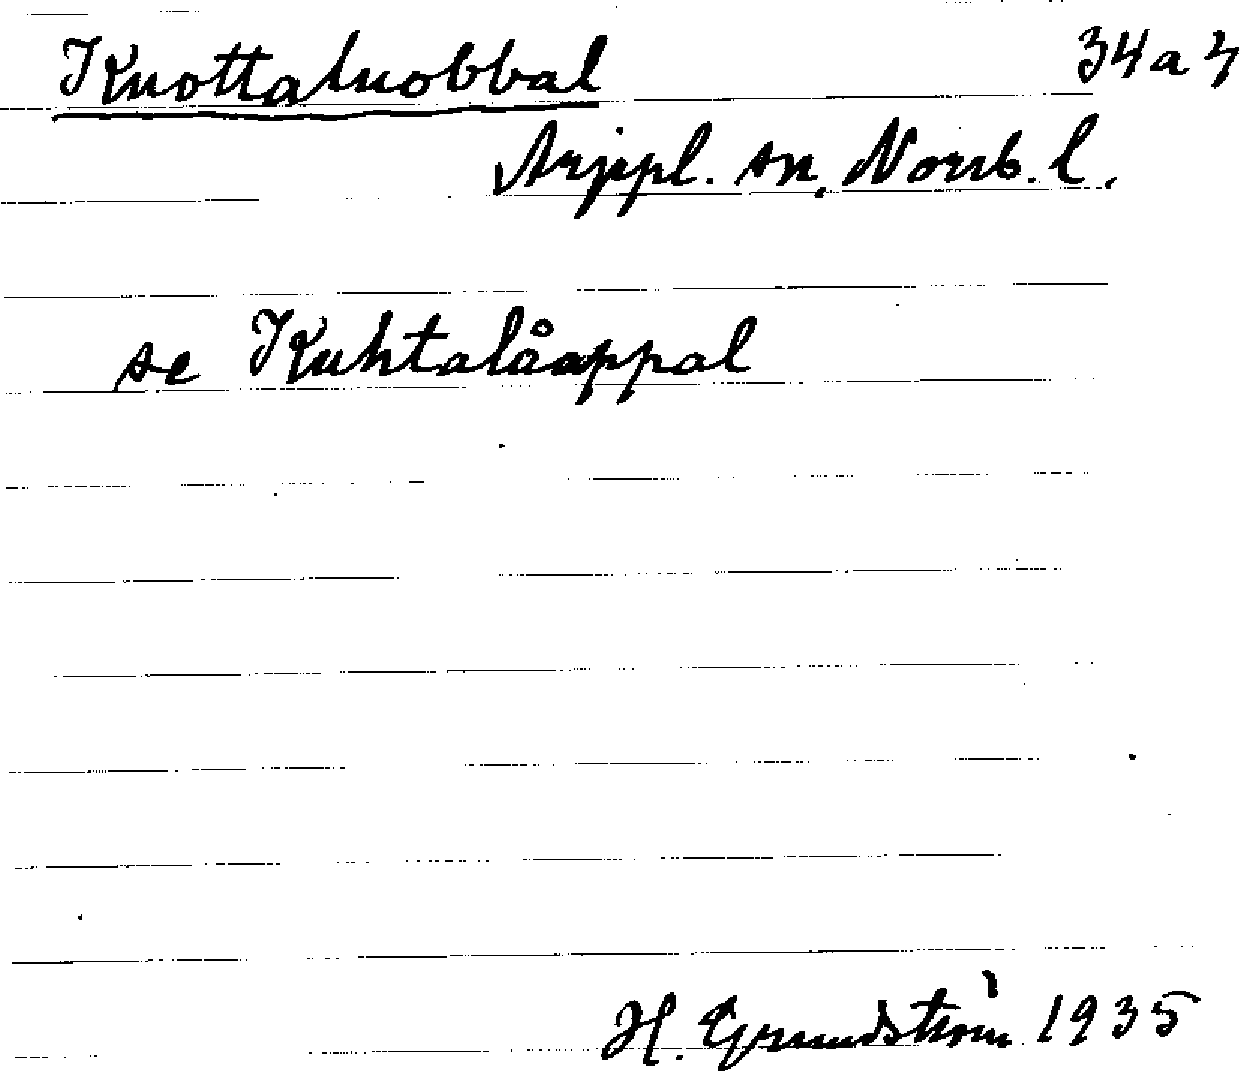 Kuottaluobbal 34a4
Arjepl. sn, Norrb. l.
se Kuhtalåappal
H. Grundström 1935